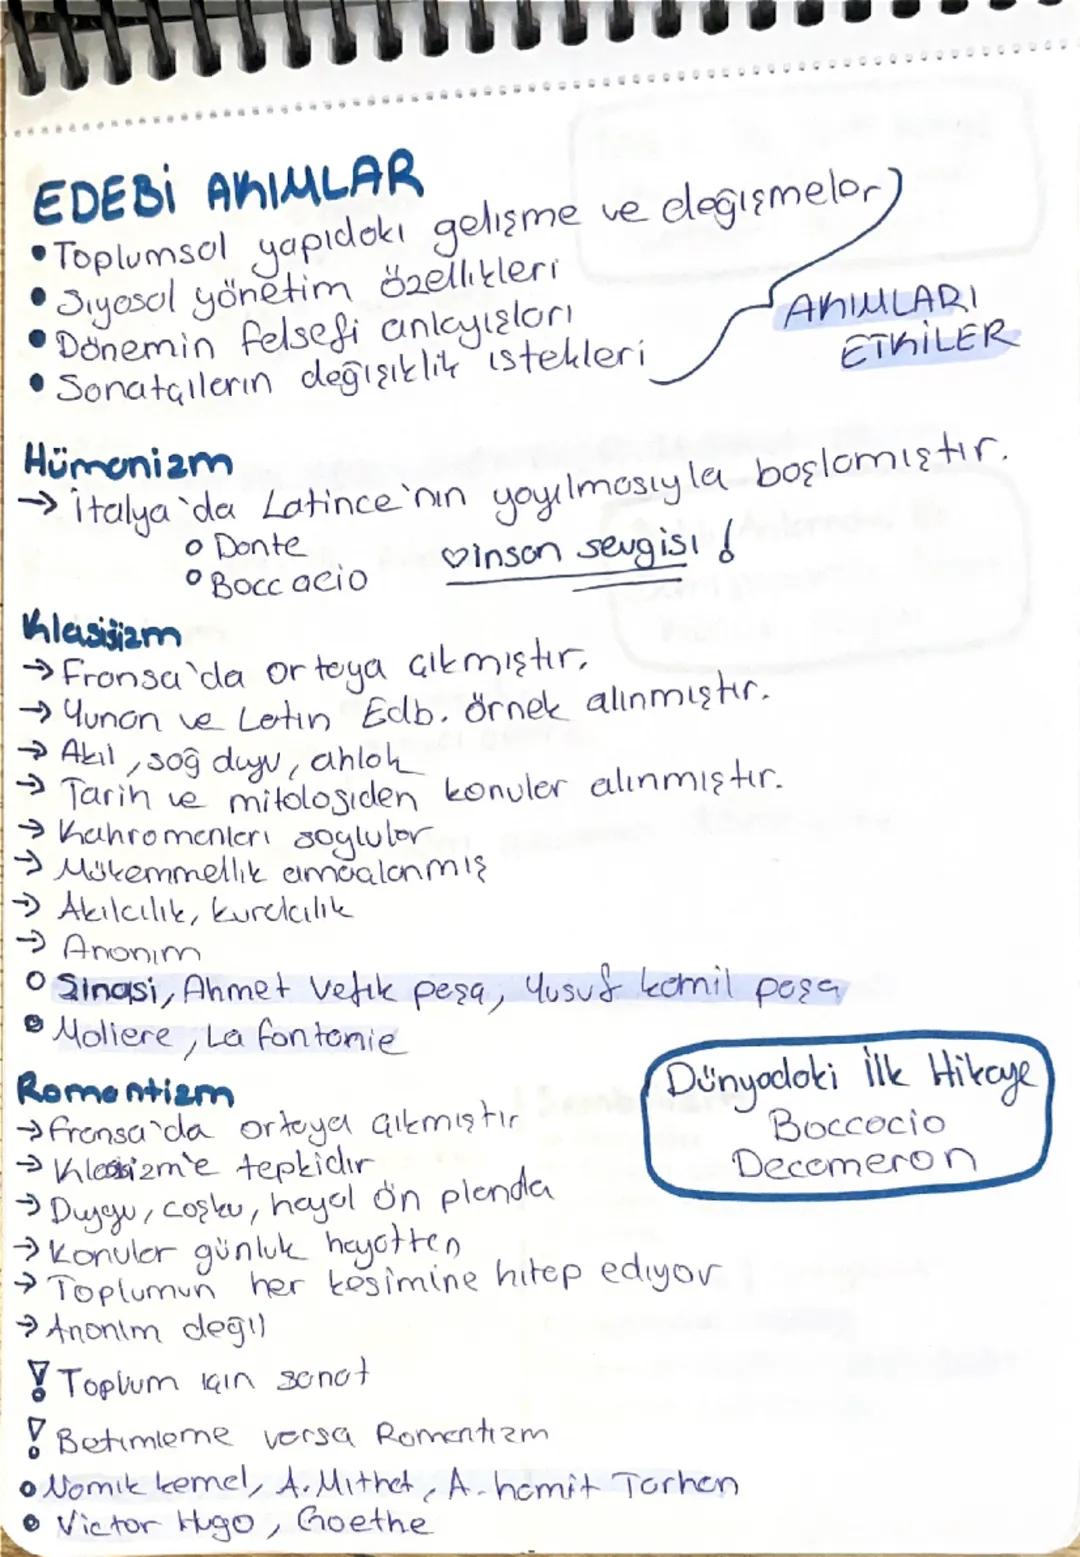 EDEBİ AKIMLAR
• Toplumsal yapıdaki gelişme ve değişmeler
• Siyasal yönetim özellikleri
• Dönemin felsefi anlayışları
• Sanatçıların değişiklik istekleri
AKIMLARI
ETKİLER
Hümanizm
→ İtalya'da Latince'nin yayılmasıyla başlamıştır.
o Dante
o Boccacio
♡insan sevgisi !
Klasisizm
→ Fransa'da ortaya çıkmıştır.
→ Yunan ve Latin Edb. örnek alınmıştır.
→ Akıl, sağ duyu, ahlak
→ Tarih ve mitolojiden konular alınmıştır.
→ Kahramanları soylular
→ Mükemmellik amaçlanmış
→ Akılcılık, kuralcılık
→ Anonim
o Şinasi, Ahmet Vefik paşa, Yusuf kamil paşa
• Moliere, La fontanie
Romantizm
→ fransa'da ortaya çıkmıştır
→ Klasisizm'e tepkidir
→ Duygu, coşku, hayal ön planda
→ Konular günlük hayattan
→ Toplumun her kesimine hitap ediyor
→ Anonim değil
! Toplum için sanat
! Betimleme varsa Romantizm
• Namık kemal, A. Mithat, A. hamit Tarhan
• Victor Hugo, Goethe
Dünyadaki İlk Hikaye
Boccocio
Decameron